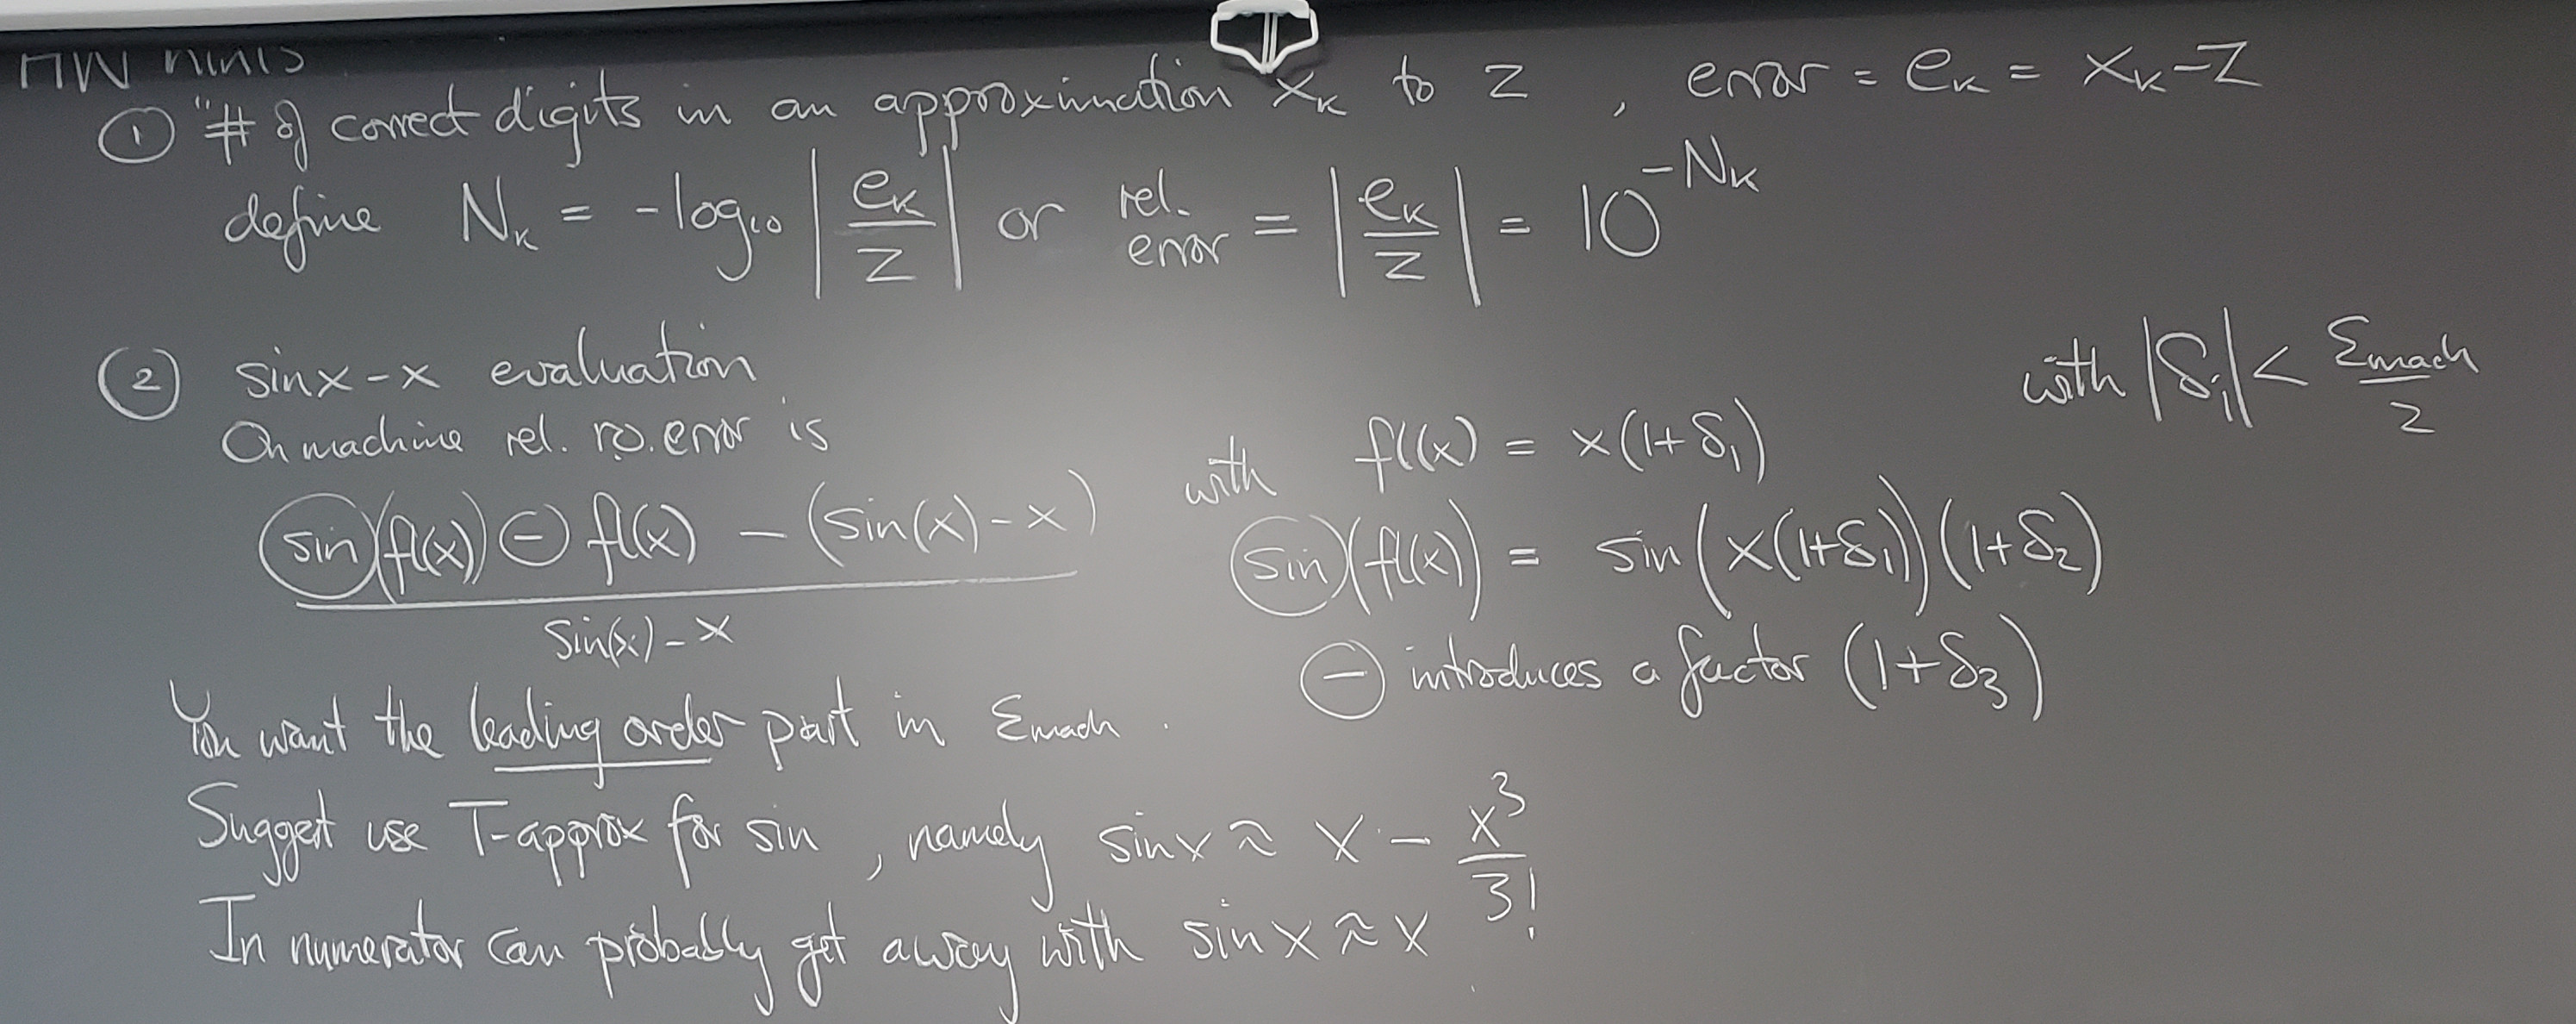 HW hints
① "# of correct digits in an approximation xₖ to z , error = eₖ = xₖ-z
define Nₖ = -log₁₀ |eₖ/z| or rel. error = |eₖ/z| = 10^(-Nₖ)
② sinx-x evaluation
with |δᵢ| < εmach/2
On machine rel. r.o. error is
(sin)(fl(x)) ⊖ fl(x) - (sin(x)-x)
sin(x)-x
with fl(x) = x(1+δ₁)
(sin)(fl(x)) = sin(x(1+δ₁))(1+δ₂)
⊖ introduces a factor (1+δ₃)
You want the leading order part in εmach .
Suggest use T-approx for sin , namely sinx ≈ x - x³/3!
In numerator can probably get away with sinx ≈ x